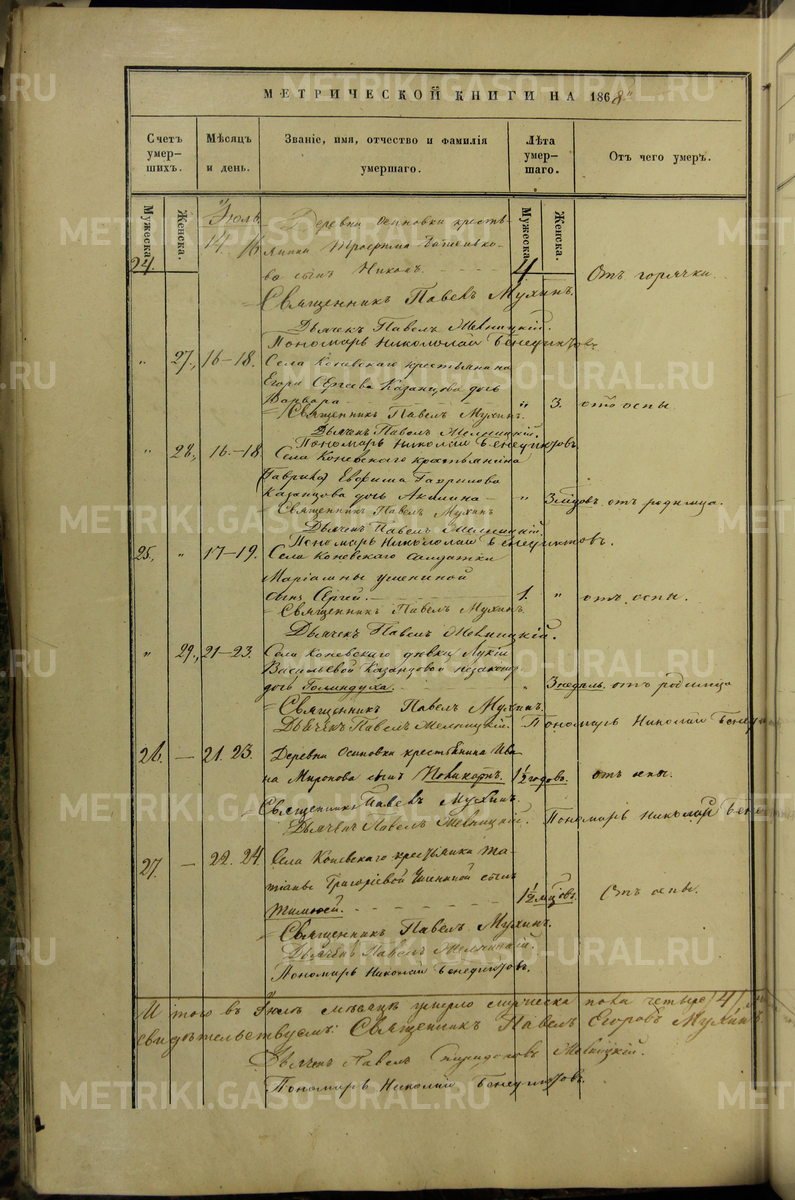 МЕТРИЧЕСКОЙ КНИГИ НА 1868
Счетъ умер-
шихъ.
Мѣсяцъ
и день.
Званіе, имя, отчество и фамилія
умершаго.
Лѣта
умер-
шаго.
Отъ чего умеръ.
Мужеска.
Женска.
Мужеска.
Женска.
Іюль
24. 14. 16. Деревни Осиновки кресть-
янина Трофима
ва сынъ 4 Отъ горячки.
Священникъ Павелъ Мухинъ.
Дьячекъ Павелъ Мевницкій.
Пономарь Николай Бенедиктовъ.
„ 27., 16–18. Села Коневскаго крестьянина
Егора Сергѣева Казанцова дочь
Варвара „ 3. отъ оспы.
Священникъ Павелъ Мухинъ.
Дьячекъ Павелъ Мевницкій.
Пономарь Николай Бенедиктовъ.
„ 28., 16.–18. Села Коневскаго крестьянина
Евфима Гаврилова
Казанцова дочь Акилина „ 3 мцовъ. отъ родимца.
Священникъ Павелъ Мухинъ
Дьячекъ Павелъ Мевницкій.
Пономарь Николай Бенедиктовъ.
25, „ 17–19. Села Коневскаго салдатки
Маріамны
сынъ Сергей. 1. „ отъ оспы.
Священникъ Павелъ Мухинъ.
Дьячекъ Павелъ Мевницкій.
„ 29., 21–23. Села Коневскаго дѣвки Лукіи
Васильевой Казанцовой незакон:
дочь Голиндуха. „ 3 недѣль. отъ родимца
Священникъ Павелъ Мухинъ.
Дьячекъ Павелъ Мевницкій. Пономарь Николай Бенеди
26. — 21. 23. Деревни Осиновки крестьянина Ива-
на Миронова сынъ 1½ годовъ. отъ оспы.
Священникъ Павелъ Мухинъ.
Дьячекъ Павелъ Мевницкій. Пономарь Николай Бене
27. — 22. 24. Села Коневскаго Та-
Григоріевой сынъ
Тимоѳей. 1½ мцовъ. Отъ оспы.
Священникъ Павелъ Мухинъ.
Дьячекъ Павелъ Мевницкій.
Пономарь Николай Бенедиктовъ.
Итого въ Іюлѣ мѣсяцѣ умерло мужеска пола четыре /4/
свидѣтельствуемъ: Священникъ Павелъ Егоровъ Мухинъ
Дьячекъ Павелъ Спиридоновъ Мевницкій.
Пономарь Николай Бенедиктовъ.
METRIKI.GASO-URAL.RU